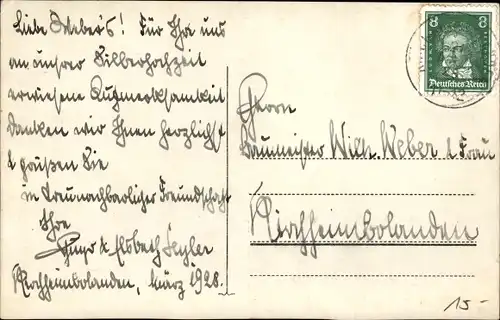 Liebe Weber's! Für Ihre uns
an unsrer Silberhochzeit
erwiesene Aufmerksamkeit
danken wir Ihnen herzlichst
& grüßen Sie
in treunachbarlicher Freundschaft
Ihre
& Elsbeth
Kirchheimbolanden, März 1928.
8 8
Deutsches Reich
Herrn
Baumeister Wilh. Weber & Frau
Kirchheimbolanden
15-